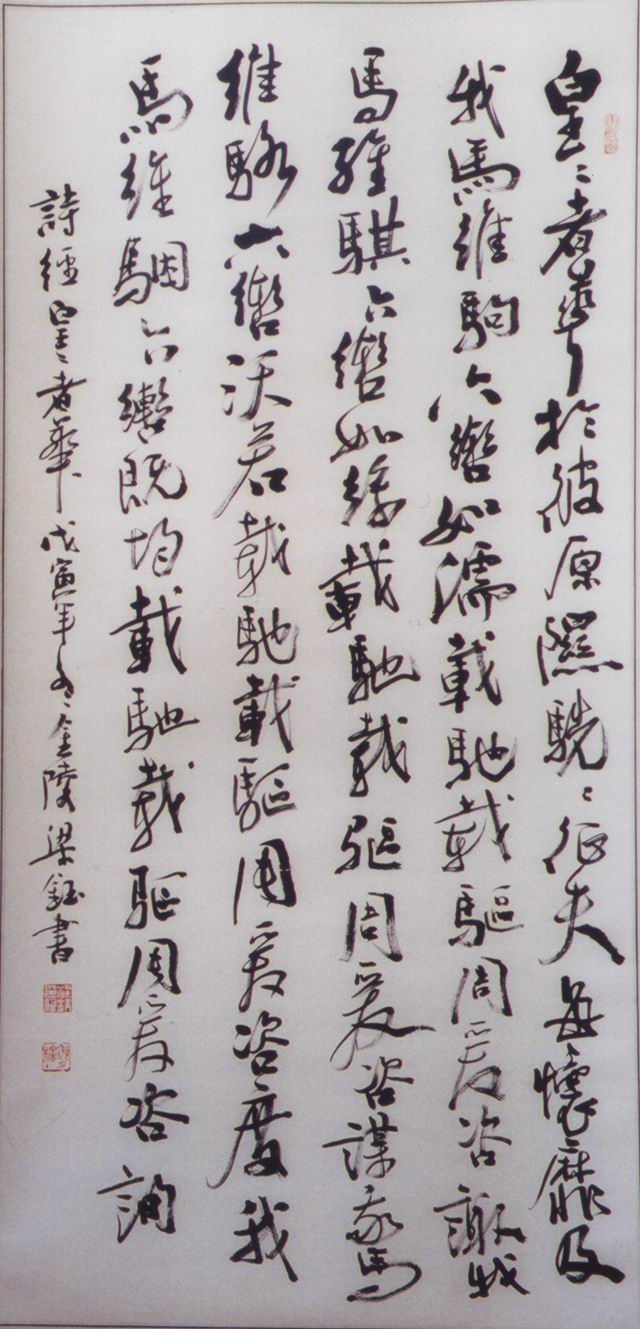 皇〻者華於彼原隰駪〻征夫每懷靡及
我馬維駒六轡如濡載馳載驅周爰咨諏我
馬維騏六轡如絲載馳載驅周爰咨謀我馬
維駱六轡沃若載馳載驅周爰咨度我
馬維駰六轡既均載馳載驅周爰咨詢
詩經皇〻者華戊寅年冬金陵梁鈺書